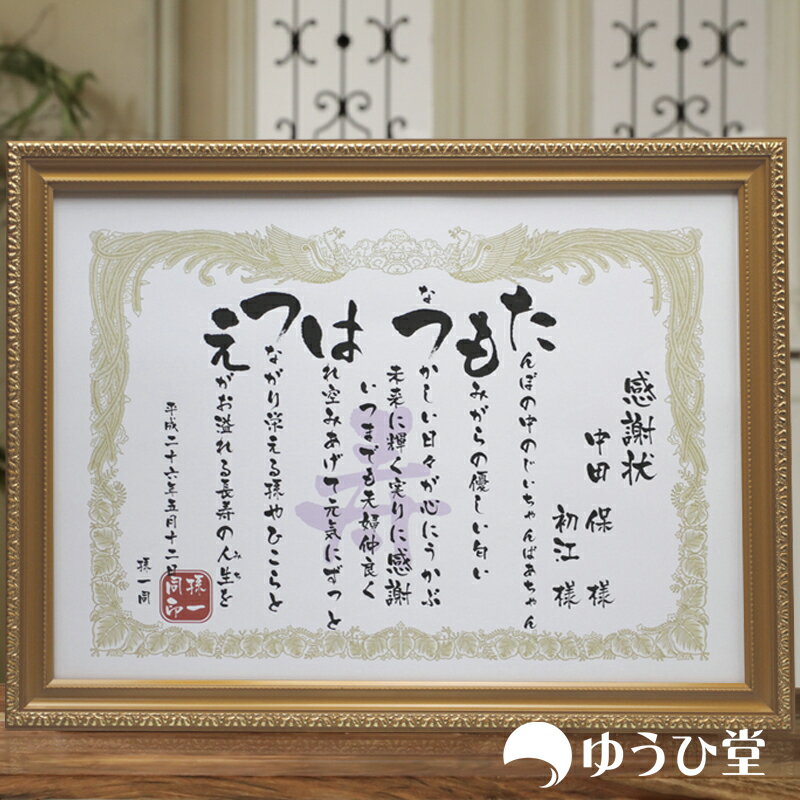 感謝状
中田 保 様
初江 様
たんぼの中のじいちゃんばあちゃん
もみがらの優しい匂い
なつかしい日々が心にうかぶ
未来に輝く実りに感謝
いつまでも夫婦仲良く
はれ空みあげて元気にずっと
つながり栄える孫やひこらと
えがお溢れる長寿の人生を
みち
平成二十六年五月十二日
孫一同
孫一同印
寿
ゆうひ堂